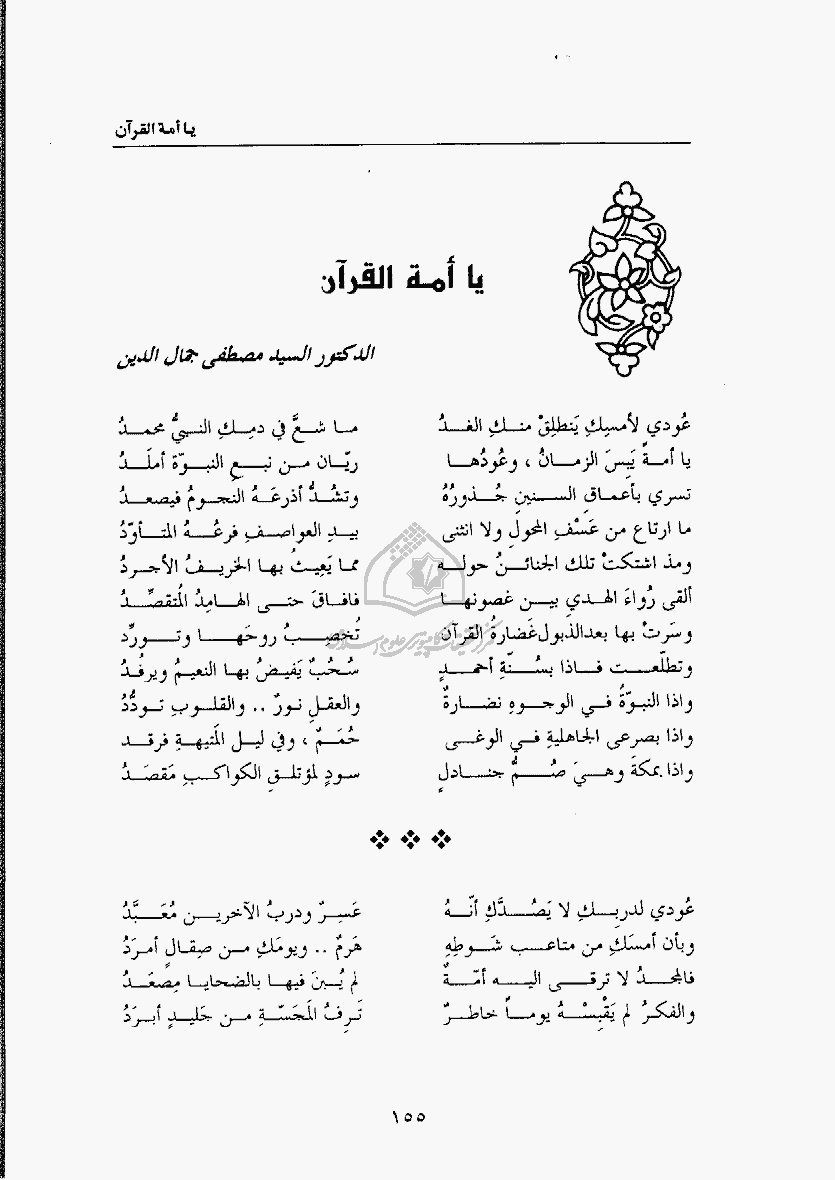 يا أمة القرآن
يا أمة القرآن
الدكتور السيد مصطفى جمال الدين
عُودي لأمسِكِ يَنطلِقْ منكِ الغدُ ما شعَّ في دمِكِ النبيُّ محمدُ
يا أمةً يَبِسَ الزمانُ ، وعُودُها ريّان من نبعِ النبوّة أملَدُ
تسري بأعماقِ السنينِ جُذورُهُ وتشُدُّ أذرعَهُ النجومُ فيصعدُ
ما ارتاع من عَسْفِ المحولِ ولا انثنى بيدِ العواصفِ فرعُهُ المتأوّدُ
ومذ اشتكتْ تلك الجنائنُ حوله مما يَعِيثُ بها الخريفُ الأجردُ
ألقى رُواءَ الهدي بين غصونها فافاقَ حتى الهامِدُ المُتقصِّدُ
وسَرَتْ بها بعدالذبول غَضارةُ القرآن تُخصِبُ روحَها وتورِّد
وتطلّعت فاذا بسُنّةِ أحمدٍ سُحُبٌ يَفيضُ بها النعيمُ ويرفُدُ
واذا النبوّةُ في الوجوهِ نضارةٌ والعقلِ نورٌ .. والقلوبِ تودُّدُ
واذا بصرعى الجاهليةِ في الوغى حُمَمٌ ، وفي ليلِ المَتيهةِ فرقد
واذا بمكةَ وهيَ صُمُّ جنادلٍ سودٍ لمؤتلقِ الكواكبِ مَقصَدُ
عُودي لدربِكِ لا يَصُدَّكِ أنّهُ عَسِرٌ ودربُ الآخرين مُعَبَّدُ
وبأن أمسَكِ من متاعب شوطِهِ هَرِمٌ .. ويومَكِ من صِقالٍ أمرَدُ
فالمجدُ لا ترقى اليه أمّةٌ لم يُبنَ فيها بالضحايا مِصْعَدُ
والفكرُ لم يَقْبِسْهُ يوماً خاطرٌ تَرِفُ المَجَسّةِ من جَليدٍ أبردُ
١٥٥